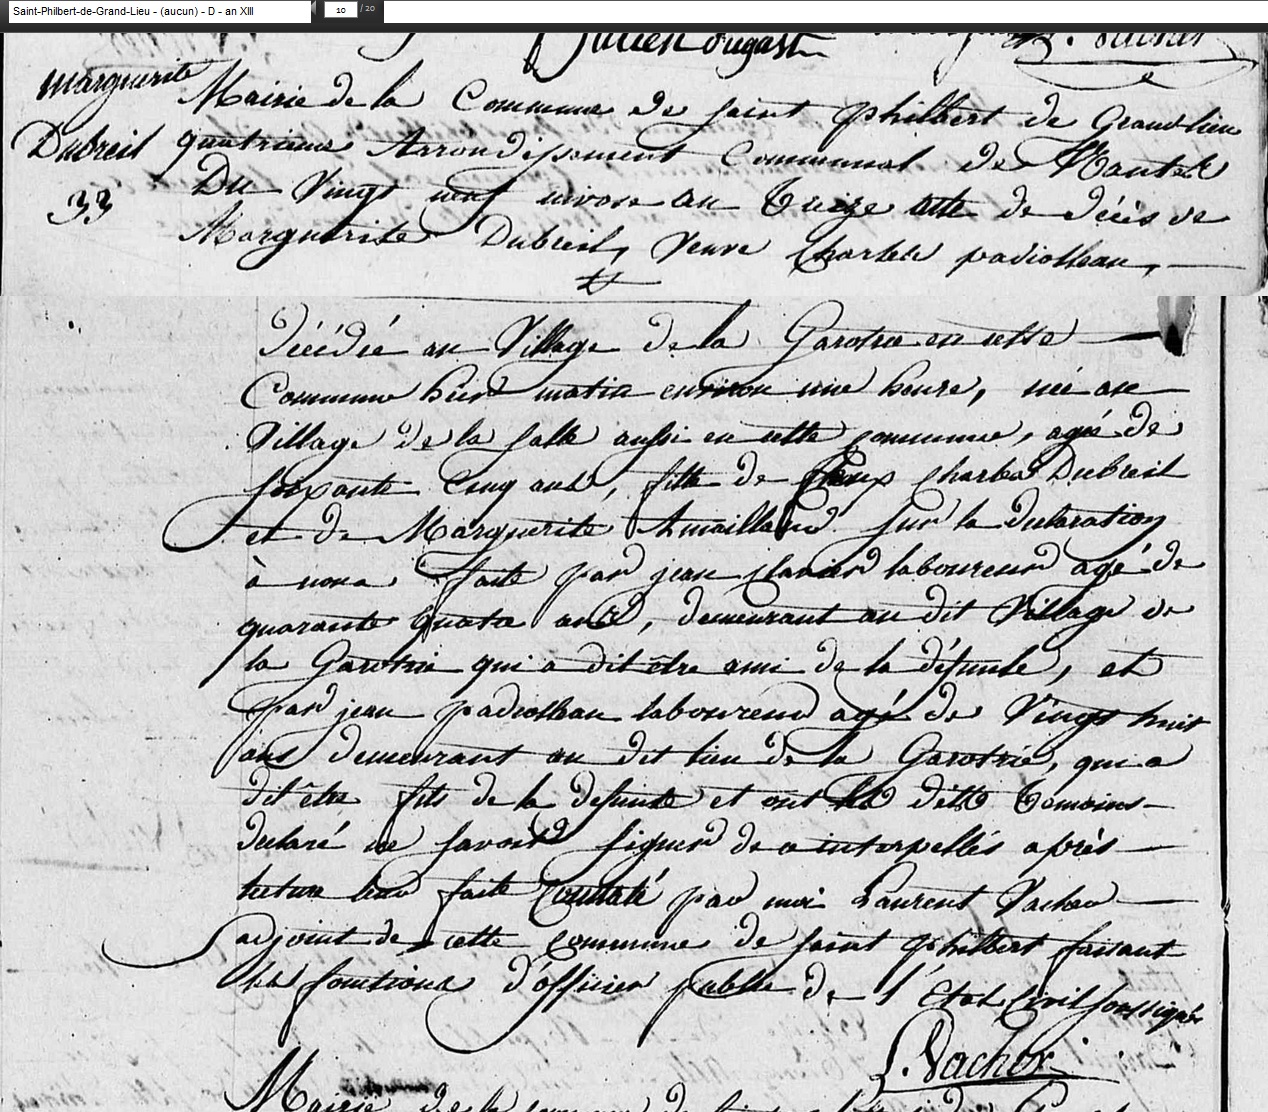 Saint-Philbert-de-Grand-Lieu - (aucun) - D - an XIII
10 / 20
Julien dugast
marguerite
Dubreil
33
Mairie de la Commune de saint philbert de Grand-lieu
quatrieme Arrondissement Communal de Nantes
Du Vingt neuf nivose an treize acte de décès de
Marguerite Dubreil, Veuve Charles padiolleau,
décédée au Village de la Garotrie en cette
Commune hier matin environ une heure, née au
Village de la salle aussi en cette commune, agée de
soixante cinq ans, fille de feux Charles Dubreil
et de Marguerite Amailland sur la declaration
à nous faite par jean Clavier laboureur agé de
quarante quatre ans, demeurant au dit Village de
la Garotrie qui a dit être ami de la défunte, et
par jean padiolleau laboureur agé de Vingt huit
ans demeurant au dit lieu de la Garotrie, qui a
dit être fils de la defunte et ont les dits temoins
declaré ne savoir signer de ce interpellés après
lecture leur faite Constaté par moi Laurent Vachor
adjoint de cette commune de saint philbert faisant
les fonctions d'officier public de l'état Civil soussigné
L. Vachor
Mairie de la